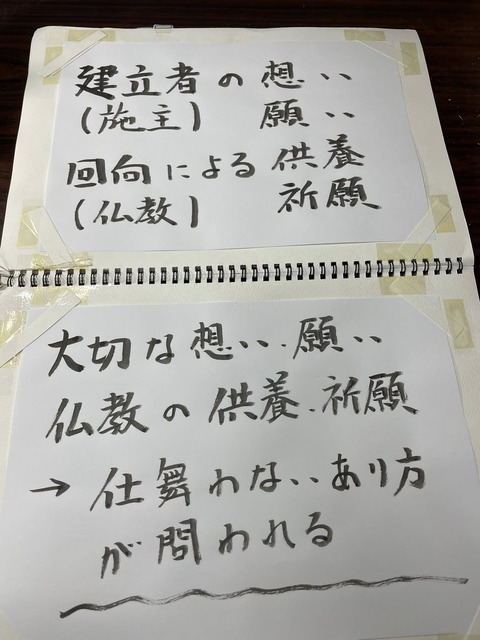 建立者の想い
(施主) 願い
回向による供養
(仏教) 祈願
大切な想い.願い
仏教の供養.祈願
→仕舞わないあり方
が問われる